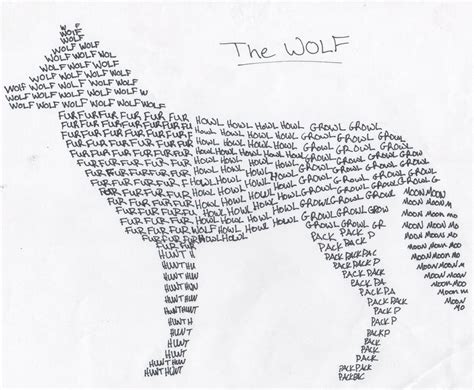 The WOLF
W
WOLF
WOLF
WOLF WOLF
WOLF WOLF WOLF
WOLF WOLF WOLF WOLF
WOLF WOLF WOLF WOLF WOLF
WOLF WOLF WOLF WOLF WOLF W
WOLF WOLF WOLF WOLF WOLF
FUR FUR FUR FUR FUR HOWL HOWL HOWL HOWL GROWL GROWL
FUR FUR FUR FUR FUR HOWL HOWL HOWL HOWL GROWL GROWL
FUR FUR FUR FUR FUR HOWL HOWL HOWL HOWL GROWL GROWL
FUR FUR FUR FUR HOWL HOWL HOWL HOWL GROWL GROWL GROWL
FUR FUR FUR FUR HOWL HOWL HOWL GROWL GROWL GROWL MOON MOON
FUR FUR FUR FUR HOWL HOWL HOWL GROWL GROWL MOON MO
FUR FUR FUR HOWL HOWL HOWL GROWL GROWL GR MOON MOON
FUR FUR FUR FUR WOLF HOWL HOWL HOWL PACK PACK P MOON MOON
FUR FUR FUR HOWL HOWL PACK PACK D MOON MOON MO
FUR FUR PACK PACK PAC MOON MOON MO
HUNT H PACK PACK D MOON MOON M
HUNT HUN PACK PACK MOON MOON
HUNT HUN PACK P MOON MOON
HUNT HUN PACK PA MOON M
HUNT HUN PACK PACK MO
HUNT H PACK P
HUNT PACK P
HUNT PACK
HUNT HUNT PACK PACK
HUNT HUNT PACK PAC